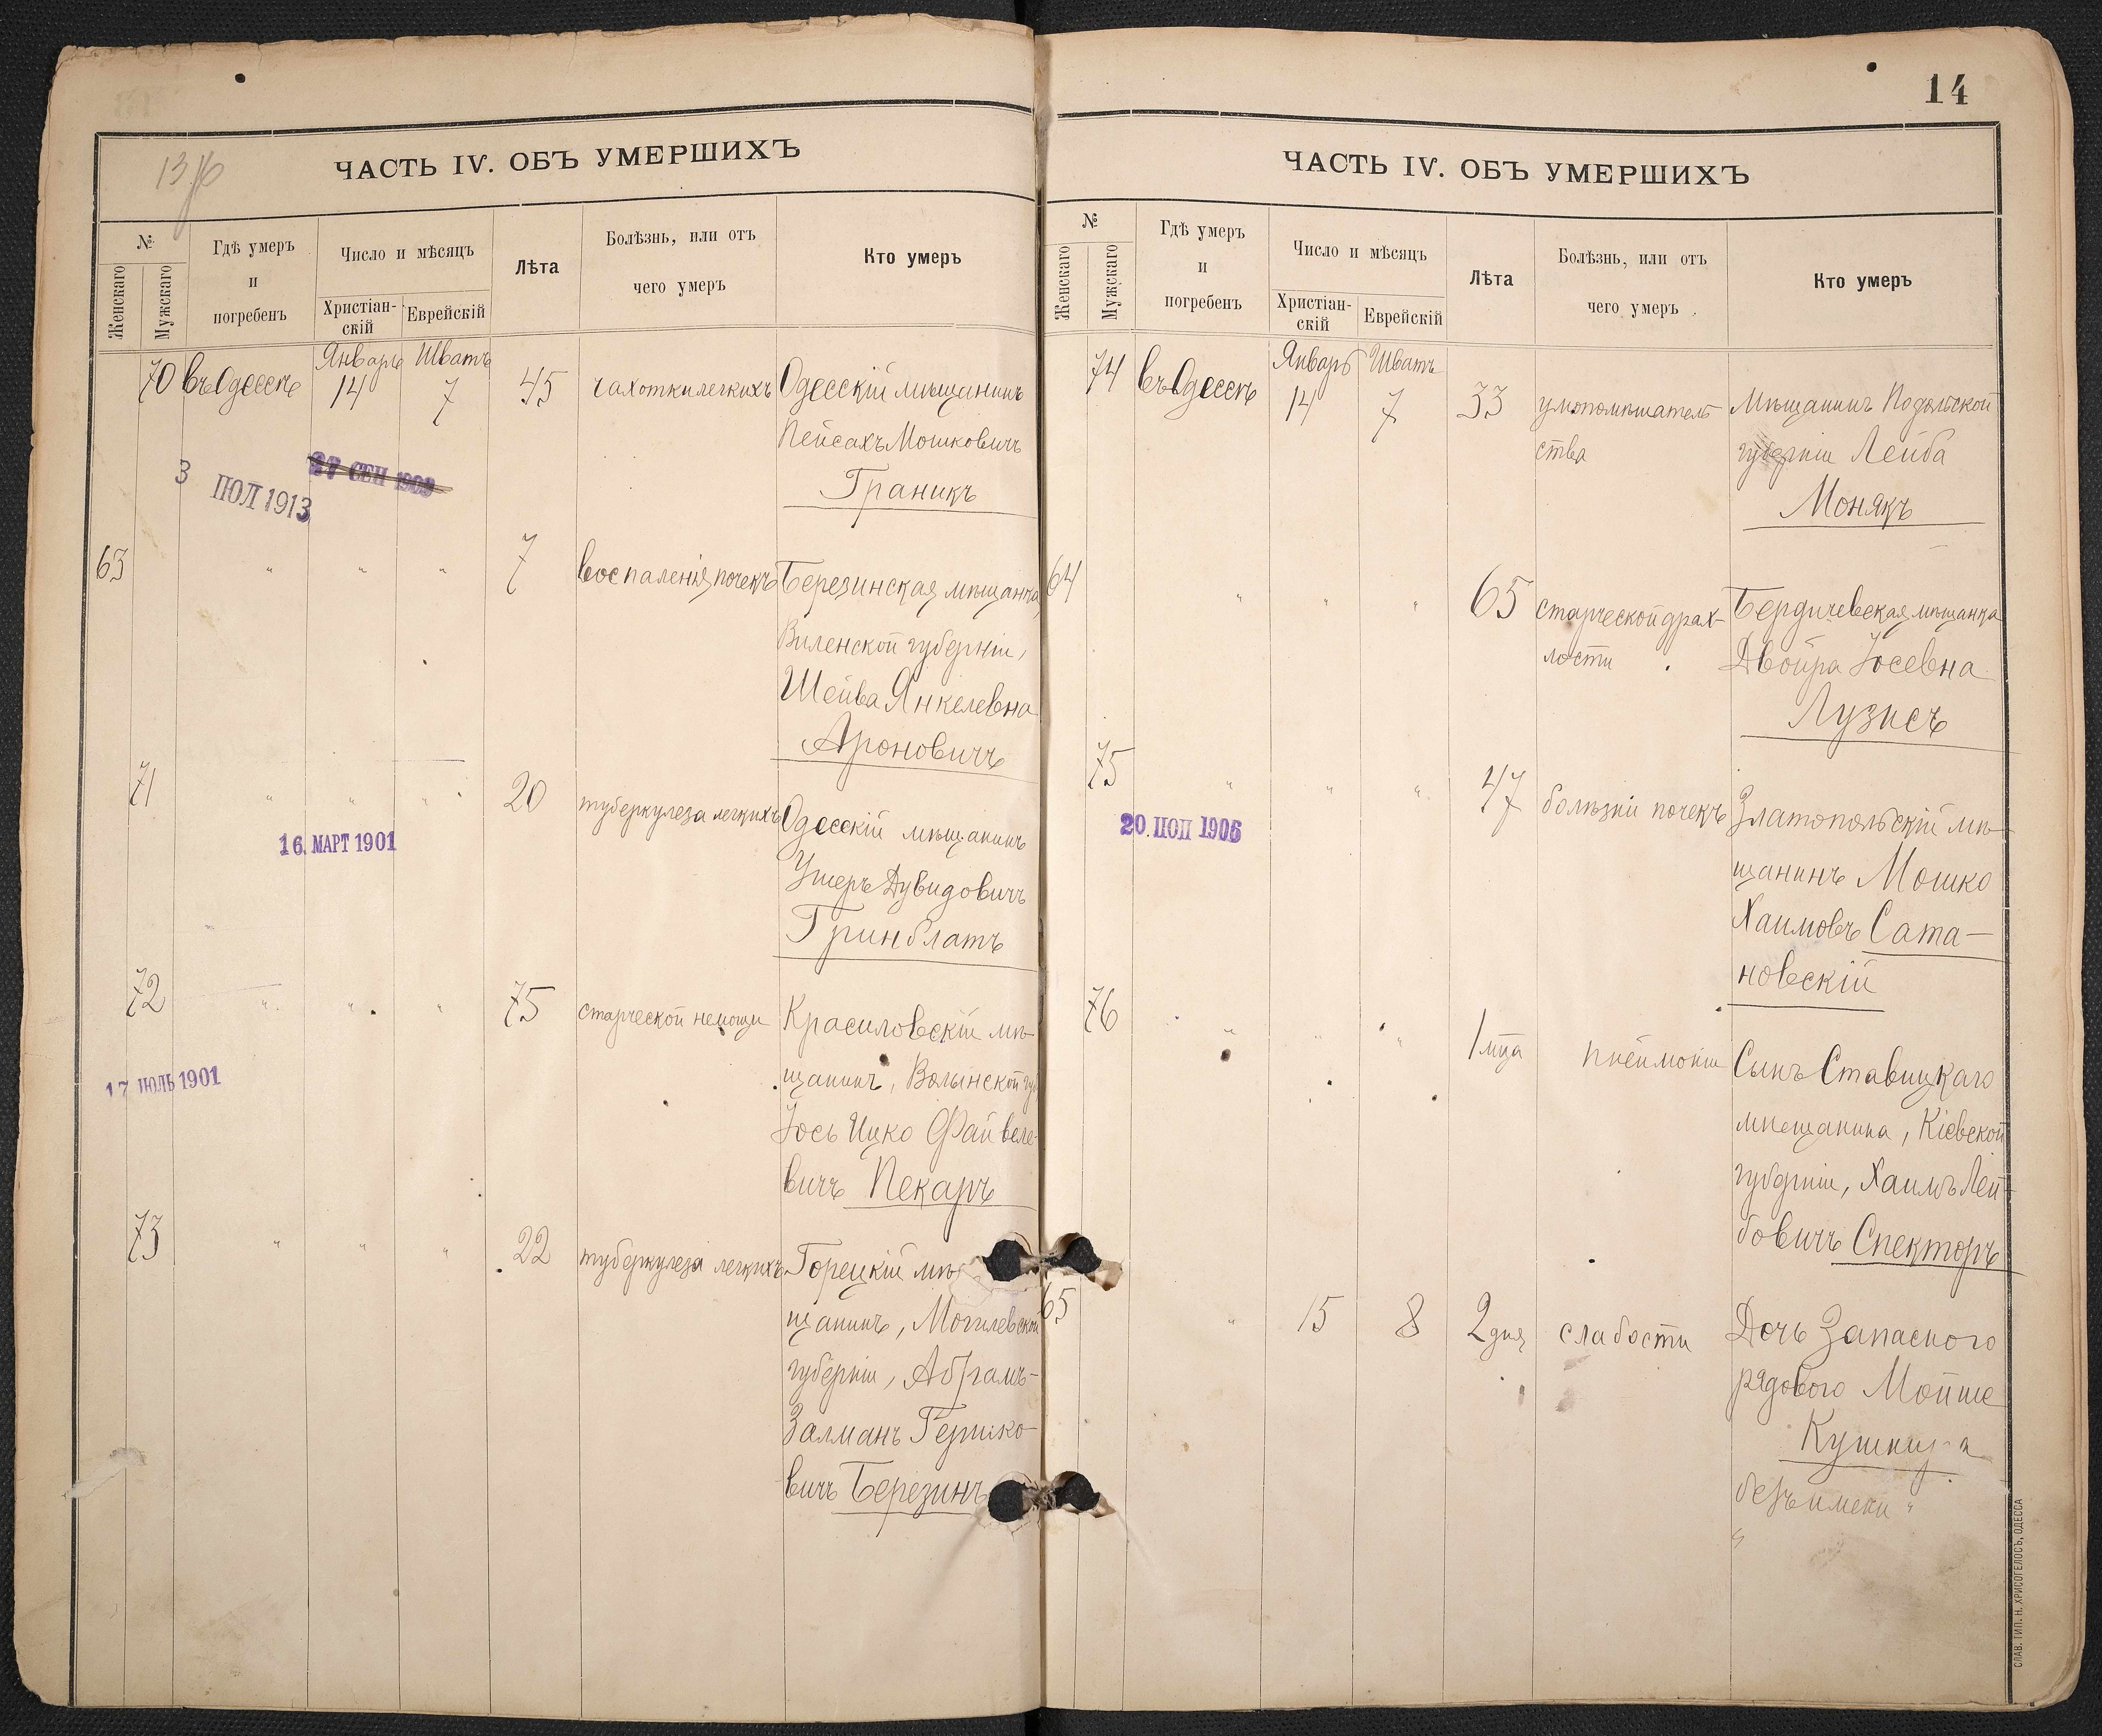 ЧАСТЬ IV. ОБЪ УМЕРШИХЪ
№
Женскаго
Мужскаго
Гдѣ умеръ
и
погребенъ
Число и мѣсяцъ
Христіан-
скій
Еврейскій
Лѣта
Болѣзнь, или отъ
чего умеръ
Кто умеръ
Январь Шватъ
70 въ Одессѣ 14 7 45 чахотки легкихъ Одесскій мѣщанинъ
Пейсахъ Мошковичъ
Граникъ
27 СЕН 1909
3 ІЮЛ 1913
63 " " " 7 воспаленія почекъ Березинская мѣщанка
Виленской губерніи,
Шейва Янкелевна
Ароновичъ
71 " " " 20 туберкулеза легкихъ Одесскій мѣщанинъ
16. МАРТ 1901
Ушеръ Дувидовичъ
Гринблатъ
72 " " " 75 старческой немощи Красиловскій мѣ-
щанинъ, Волынской губ
17 ІЮЛЬ 1901
Іось Ицко Файвеле-
вичъ Пекаръ
73 " " " 22 туберкулеза легкихъ Горецкій мѣ-
щанинъ, Могилевской
губерніи, Абрамъ-
Залманъ Гершко-
вичъ Березинъ
14
ЧАСТЬ IV. ОБЪ УМЕРШИХЪ
№
Женскаго
Мужскаго
Гдѣ умеръ
и
погребенъ
Число и мѣсяцъ
Христіан-
скій
Еврейскій
Лѣта
Болѣзнь, или отъ
чего умеръ
Кто умеръ
Январь Шватъ
74 въ Одессѣ 14 7 33 умопомѣшатель Мѣщанинъ Подольской
ства губерніи Лейба
Монякъ
64 " " " 65 старческой драх- Бердичевская мѣщанка
лости Двойра Іосевна
Лузисъ
75 " " " 47 болѣзни почекъ Златопольскій мѣ-
20. ІЮЛ 1906
щанинъ Мошко
Хаимовъ Сата-
новскій
76 " " " 1 мца пнеймоніи Сынъ Ставицкаго
мѣщанина, Кіевской
губерніи, Хаимъ Лей-
бовичъ Спекторъ
65 " 15 8 2 дня слабости Дочь Запасного
рядового Мойше
Кушнира
безъ имени "
"
СЛАВ. ТИП. Н. ХРИСОГЕЛОСЪ, ОДЕССА